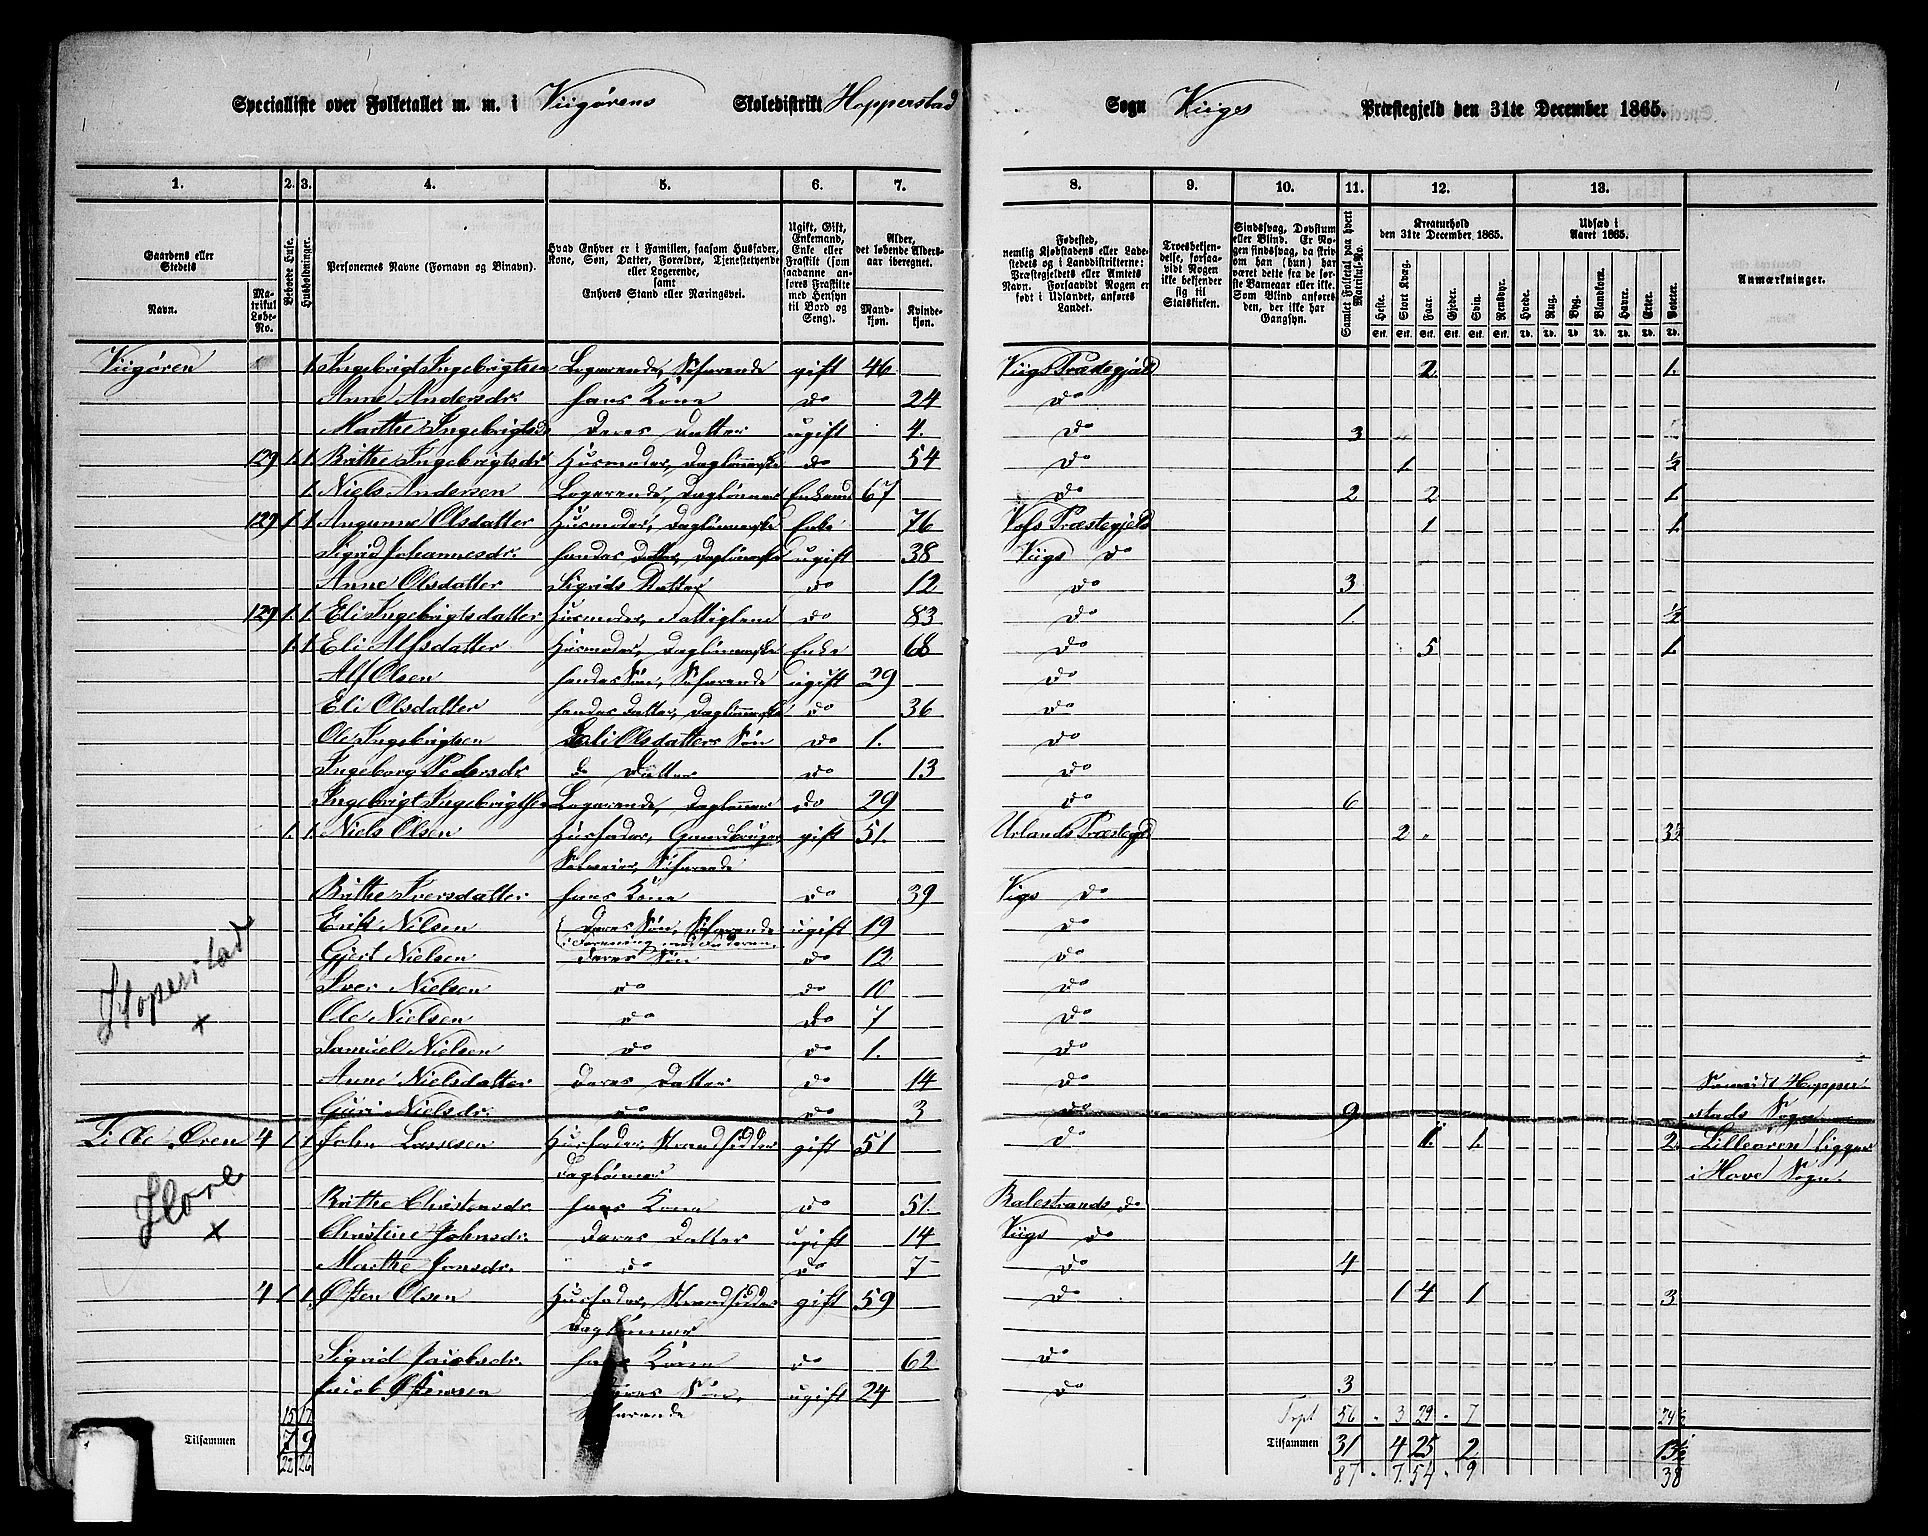 Specialliste over Folketallet m. m. i Viigørens Skoledistrikt Hopperstad Sogn Viigs Præstegjeld den 31te December 1865.
1. 2. 3. 4. 5. 6. 7. 8. 9. 10. 11. 12. 13.
Gaardens eller Stedets
Navn.
Matrikul Løbe-No.
Beboede Huse.
Husholdninger.
Personernes Navne (Fornavn og Binavn).
Hvad Enhver er i Familien, saasom Husfader, Kone, Søn, Datter, Forældre, Tjenestetyende eller Logerende, samt Enhvers Stand eller Næringsvei.
Ugift, Gift, Enkemand, Enke eller Fraskilt (som saadanne anføres Fraskilte med Hensyn til Bord og Seng).
Alder, det løbende Aldersaar iberegnet.
Mandkjøn. Kvindekjøn.
Fødested, nemlig Kjøbstadens eller Ladestedets og i Landdistrikterne: Præstegjeldets eller Amtets Navn. Forsaavidt Nogen er født i Udlandet, anføres Landet.
Troesbekjendelse, forsaavidt Nogen ikke bekjender sig til Statskirken.
Sindssvag, Døvstum eller Blind. Er Nogen sindssvag, da skrives om han (hun) har været dette fra de første Barneaar eller ei. Som Blind anføres den, der ikke har Gangsyn.
Samlet Folketal paa hvert Matrikul-No.
Kreaturhold den 31te December 1865.
Heste. Stort Kvæg. Faar. Gjeder. Svin. Rensdyr.
Udsæd i Aaret 1865.
Hvede. Rug. Byg. Blandkorn. Havre. Erter. Poteter.
Anmærkninger.
Viigøren 1. Ingebrigt Ingebrigtsen Logerende, Søfarende gift 46 Viigs Præstegjeld 2 1.
Anne Andersdr. hans Kone do 24 do
Marthe Ingebrigtsdr Deres Datter ugift 4. do 3
129 1. 1. Brithe Ingebrigtsdr Husmoder, Daglønnerske do 54 do 1 ½
1. Niels Andersen Logerende, Daglønner Enkemd 67 do 2 2 1.
129 1. 1. Angunne Olsdatter Husmoder, Daglønnerske Enke 76 Præstegjeld 1 1.
Sigrid Johannesdr. hendes Datter, Daglønnerske ugift 38 Viigs do
Anne Olsdatter Sigrids Datter do 12 do 3
129 1. 1. Eli Ingebrigtsdatter Husmoder, Fattiglem do 83 do 1 ½
1. 1. Eli Alfsdatter Husmoder, Daglønnerske Enke 68 do 5 1.
Alf Olsen hendes Søn, Søfarende ugift 29 do
Eli Olsdatter hendes Datter, Daglønnerske do 36 do
Ole Ingebrigtsen Eli Olsdatters Søn do 1. do
Ingeborg Pedersdr do Datter do 13 do
Ingebrigt Ingebrigtsen Logerende, Daglønner do 29 do 6
1. 1. Niels Olsen Husfader, Gaardbruger, gift 51. Urlands Præstegjd 2 3½
Selveier, Søfarende
Brithe Iversdatter hans Kone do 39 Viigs do
Erik Nilsen Deres Søn, Søfarende ugift 19 do
i Forening med Faderen.
Gjert Nielsen Deres Søn do 12 do
Iver Nielsen do do 10 do
Hoperstad
x
Ole Nielsen do do 7 do
Samuel Nielsen do do 1. do
Anne Nielsdatter Deres Datter do 14 do Hopper
Guri Nielsdr. do do 3 do 9 stads Sogn
Lille Øren 4 1 1 John Lassesen Husfader, Strandsidder gift 51 do 1. 1. 2. Lilleøren ligger
Daglønner i Hove Sogn.
Hove
x
Brithe Christensdr. hans Kone do 51. Balestrands do
Christine Johnsdr. Deres Datter ugift 14 Viigs do
Marthe Jonsdr. do do 7 do 4
4 1 1. Østen Olsen Husfader, Strandsidder gift 59 do 1 4 1 3
Daglønner
Sigrid Jacobsdr. hans Kone do 62 do
Jacob Østensen Deres Søn, ugift 24 do 3
Søfarende
15 17 Trpt 56 3 29 7 24½
Tilsammen 7 9 Tilsammen 31 4 25 2 13½
22 26 87 7 54 9 38